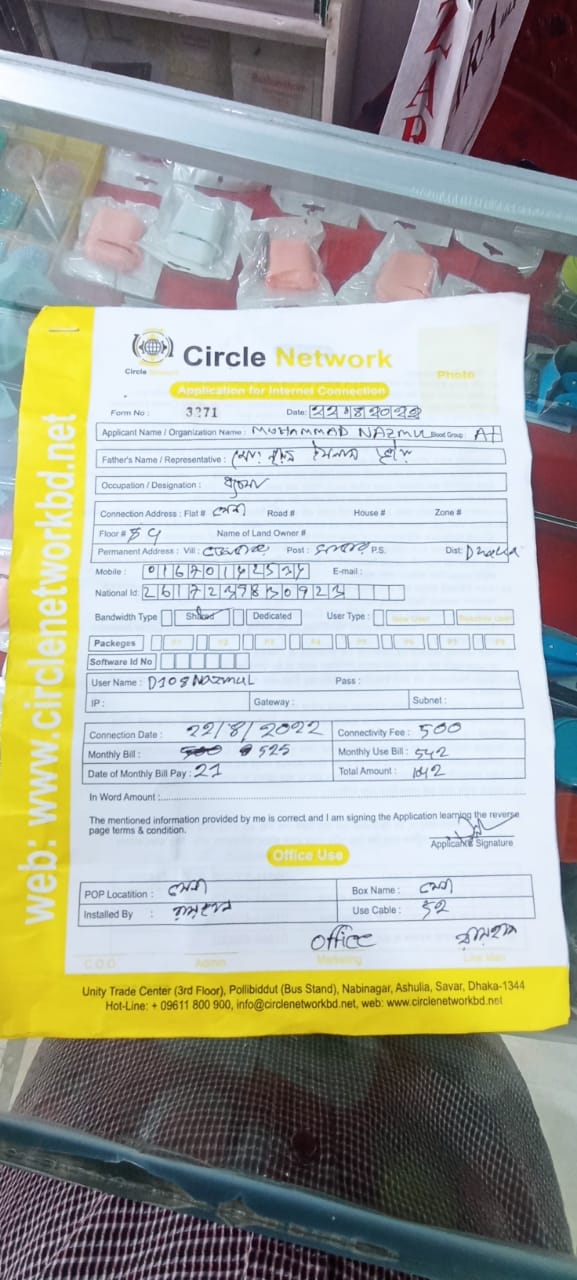 ZAR
ARA
web: www.circlenetworkbd.net
Circle Network
Circle Network
Photo
Application for Internet Connection
Form No : 3271 Date: 22 08 2022
Applicant Name / Organization Name : MUHAMMAD NAZMUL Blood Group : A+
Father's Name / Representative : মোঃ
Occupation / Designation :
Connection Address : Flat # Road # House # Zone #
Floor # Name of Land Owner #
Permanent Address : Vill : Post : P.S. Dist: Dhaka
Mobile : E-mail :
National Id: 2617239830923
Bandwidth Type Shared Dedicated User Type : New User Reactive User
Packeges P1 P2 P3 P4 P5 P6 P7 P8
Software Id No
User Name : D108NAZMUL Pass :
IP : Gateway : Subnet :
Connection Date : 22/8/2022 Connectivity Fee : 500
Monthly Bill : 500 525 Monthly Use Bill : 542
Date of Monthly Bill Pay : 21 Total Amount : 1042
In Word Amount :
The mentioned information provided by me is correct and I am signing the Application learning the reverse
page terms & condition.
Applicant Signature
Office Use
POP Locatition : Box Name :
Installed By : Use Cable :
office
C.O.O Admin Marketing Line Man
Unity Trade Center (3rd Floor), Pollibiddut (Bus Stand), Nabinagar, Ashulia, Savar, Dhaka-1344
Hot-Line: + 09611 800 900, info@circlenetworkbd.net, web: www.circlenetworkbd.net